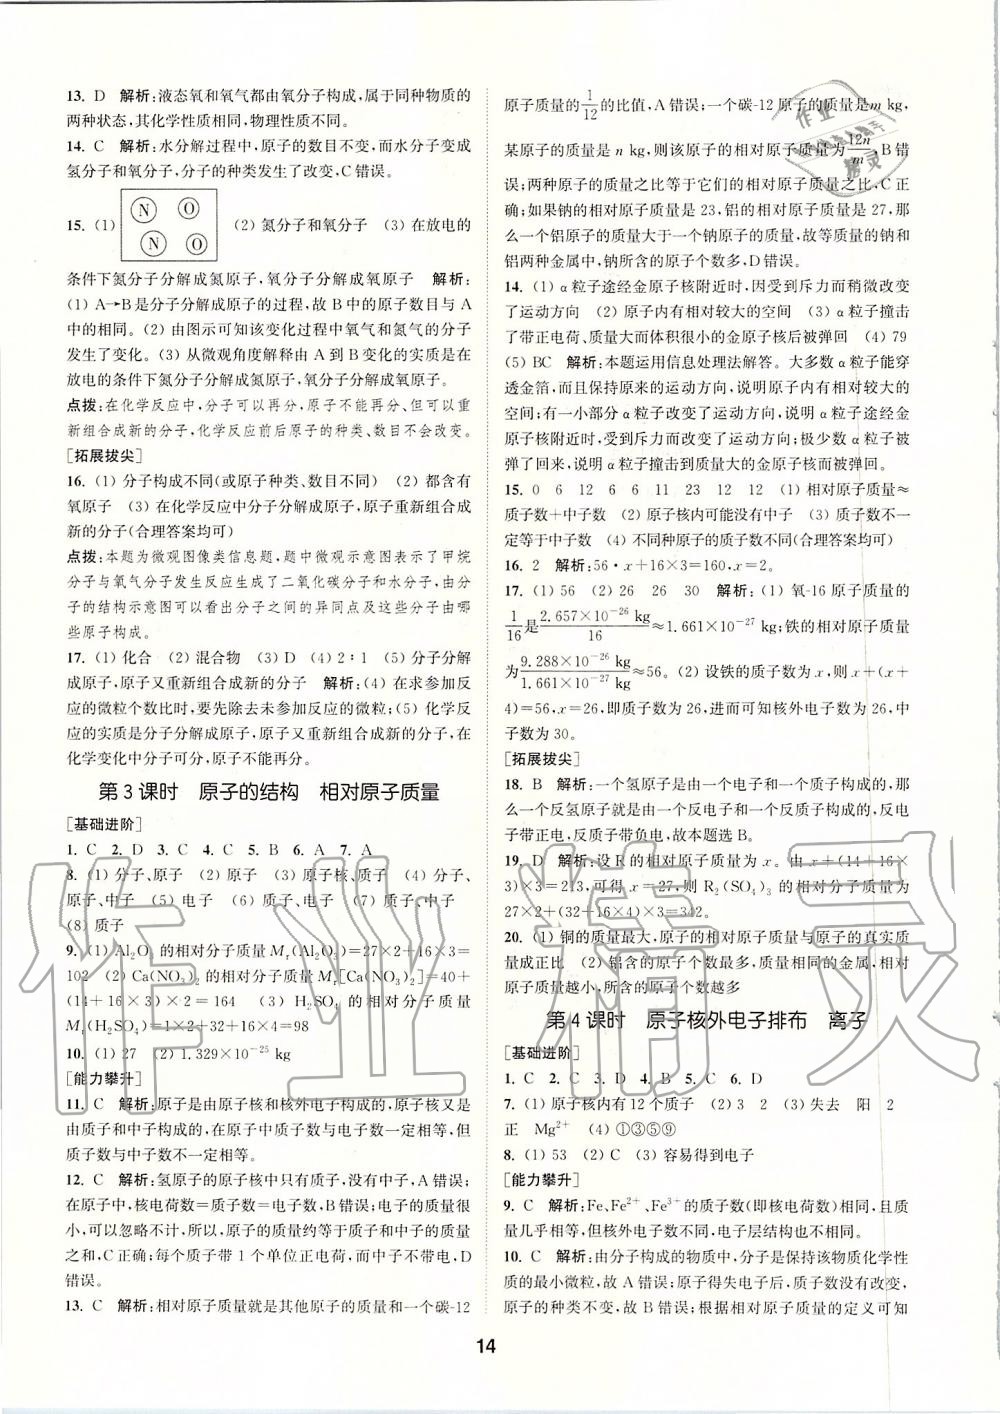 13. D 解析:液态氧和氧气都由氧分子构成,属于同种物质的
两种状态,其化学性质相同,物理性质不同。
14. C 解析:水分解过程中,原子的数目不变,而水分子变成
氢分子和氧分子,分子的种类发生了改变,C错误。
15. (1) N O N O (2) 氮分子和氧分子 (3) 在放电的
条件下氮分子分解成氮原子,氧分子分解成氧原子 解析:
(1) A→B是分子分解成原子的过程,故B中的原子数目与A
中的相同。(2) 由图示可知该变化过程中氧气和氮气的分子
发生了变化。(3) 从微观角度解释由A到B变化的实质是在
放电的条件下氮分子分解成氮原子,氧分子分解成氧原子。
点拨:在化学反应中,分子可以再分,原子不能再分、但可以重
新组合成新的分子,化学反应前后原子的种类、数目不会改变。
[拓展拔尖]
16. (1) 分子构成不同(或原子种类、数目不同) (2) 都含有
氧原子 (3) 在化学反应中分子分解成原子,原子重新组合成
新的分子(合理答案均可)
点拨:本题为微观图像类信息题,题中微观示意图表示了甲烷
分子与氧气分子发生反应生成了二氧化碳分子和水分子,由分
子的结构示意图可以看出分子之间的异同点及这些分子由哪
些原子构成。
17. (1) 化合 (2) 混合物 (3) D (4) 2∶1 (5) 分子分解
成原子,原子又重新组合成新的分子 解析:(4) 在求参加反
应的微粒个数比时,要先除去未参加反应的微粒;(5) 化学反
应的实质是分子分解成原子,原子又重新组合成新的分子,在
化学变化中分子可分,原子不能再分。
第3课时 原子的结构 相对原子质量
[基础进阶]
1. C 2. D 3. C 4. C 5. B 6. A 7. A
8. (1) 分子、原子 (2) 原子 (3) 原子核、质子 (4) 分子、
原子、中子 (5) 电子 (6) 质子、电子 (7) 质子、中子
(8) 质子
9. (1) Al₂O₃的相对分子质量Mr(Al₂O₃)=27×2+16×3=
102 (2) Ca(NO₃)₂的相对分子质量Mr[Ca(NO₃)₂]=40+
(14+16×3)×2=164 (3) H₂SO₄的相对分子质量
Mr(H₂SO₄)=1×2+32+16×4=98
10. (1) 27 (2) 1.329×10⁻²⁵ kg
[能力攀升]
11. C 解析:原子是由原子核和核外电子构成的,原子核又是
由质子和中子构成的,在原子中质子数与电子数一定相等,但
质子数与中子数不一定相等。
12. C 解析:氢原子的原子核中只有质子,没有中子,A错误;
在原子中,核电荷数=质子数=电子数,B错误;电子的质量很
小,可以忽略不计,所以,原子的质量约等于质子和中子的质量
之和,C正确;每个质子带1个单位正电荷,而中子不带电,D
错误。
13. C 解析:相对原子质量就是其他原子的质量和一个碳-12
原子质量的1/12的比值,A错误;一个碳-12原子的质量是m kg,
某原子的质量是n kg,则该原子的相对原子质量为12n/m,B错
误;两种原子的质量之比等于它们的相对原子质量之比,C正
确;如果钠的相对原子质量是23,铝的相对原子质量是27,那
么一个铝原子的质量大于一个钠原子的质量,故等质量的钠和
铝两种金属中,钠所含的原子个数多,D错误。
14. (1) α粒子途经金原子核附近时,因受到斥力而稍微改变
了运动方向 (2) 原子内有相对较大的空间 (3) α粒子撞击
了带正电荷、质量大而体积很小的金原子核后被弹回 (4) 79
(5) BC 解析:本题运用信息处理法解答。大多数α粒子能穿
透金箔,而且保持原来的运动方向,说明原子内有相对较大的
空间;有一小部分α粒子改变了运动方向,说明α粒子途经金
原子核附近时,受到斥力而改变了运动方向;极少数α粒子被
弹了回来,说明α粒子撞击到质量大的金原子核而被弹回。
15. 0 6 12 6 6 11 23 12 12 (1) 相对原子质量≈
质子数+中子数 (2) 原子核内可能没有中子 (3) 质子数不一
定等于中子数 (4) 不同种原子的质子数不同(合理答案均可)
16. 2 解析:56·x+16×3=160,x=2。
17. (1) 56 (2) 26 26 30 解析:(1) 氧-16原子质量的
1/16是2.657×10⁻²⁶ kg/16≈1.661×10⁻²⁷ kg;铁的相对原子质量
为9.288×10⁻²⁶ kg/1.661×10⁻²⁷ kg≈56。(2) 设铁的质子数为x,则x+(x+
4)=56,x=26,即质子数为26,进而可知核外电子数为26,中
子数为30。
[拓展拔尖]
18. B 解析:一个氢原子是由一个电子和一个质子构成的,那
么一个反氢原子就是由一个反电子和一个反质子构成的,反电
子带正电,反质子带负电,故本题选B。
19. D 解析:设R的相对原子质量为x。由x+(14+16×
3)×3=213,可得x=27,则R₂(SO₄)₃的相对分子质量为
27×2+(32+16×4)×3=342。
20. (1) 铜的质量最大,原子的相对原子质量与原子的真实质
量成正比 (2) 铝含的原子个数最多,质量相同的金属,相对
原子质量越小,所含的原子个数越多
第4课时 原子核外电子排布 离子
[基础进阶]
1. C 2. C 3. D 4. B 5. C 6. D
7. (1) 原子核内有12个质子 (2) 3 2 (3) 失去 阳 2
正 Mg²⁺ (4) ①③⑤⑨
8. (1) 53 (2) C (3) 容易得到电子
[能力攀升]
9. C 解析:Fe、Fe²⁺、Fe³⁺的质子数(即核电荷数)相同,且质
量几乎相等,但核外电子数不同,电子层结构也不相同。
10. C 解析:由分子构成的物质中,分子是保持该物质化学性
质的最小微粒,故A错误;原子得失电子后,质子数没有改变,
原子的种类不变,故B错误;根据相对原子质量的定义可知
14
作业精灵